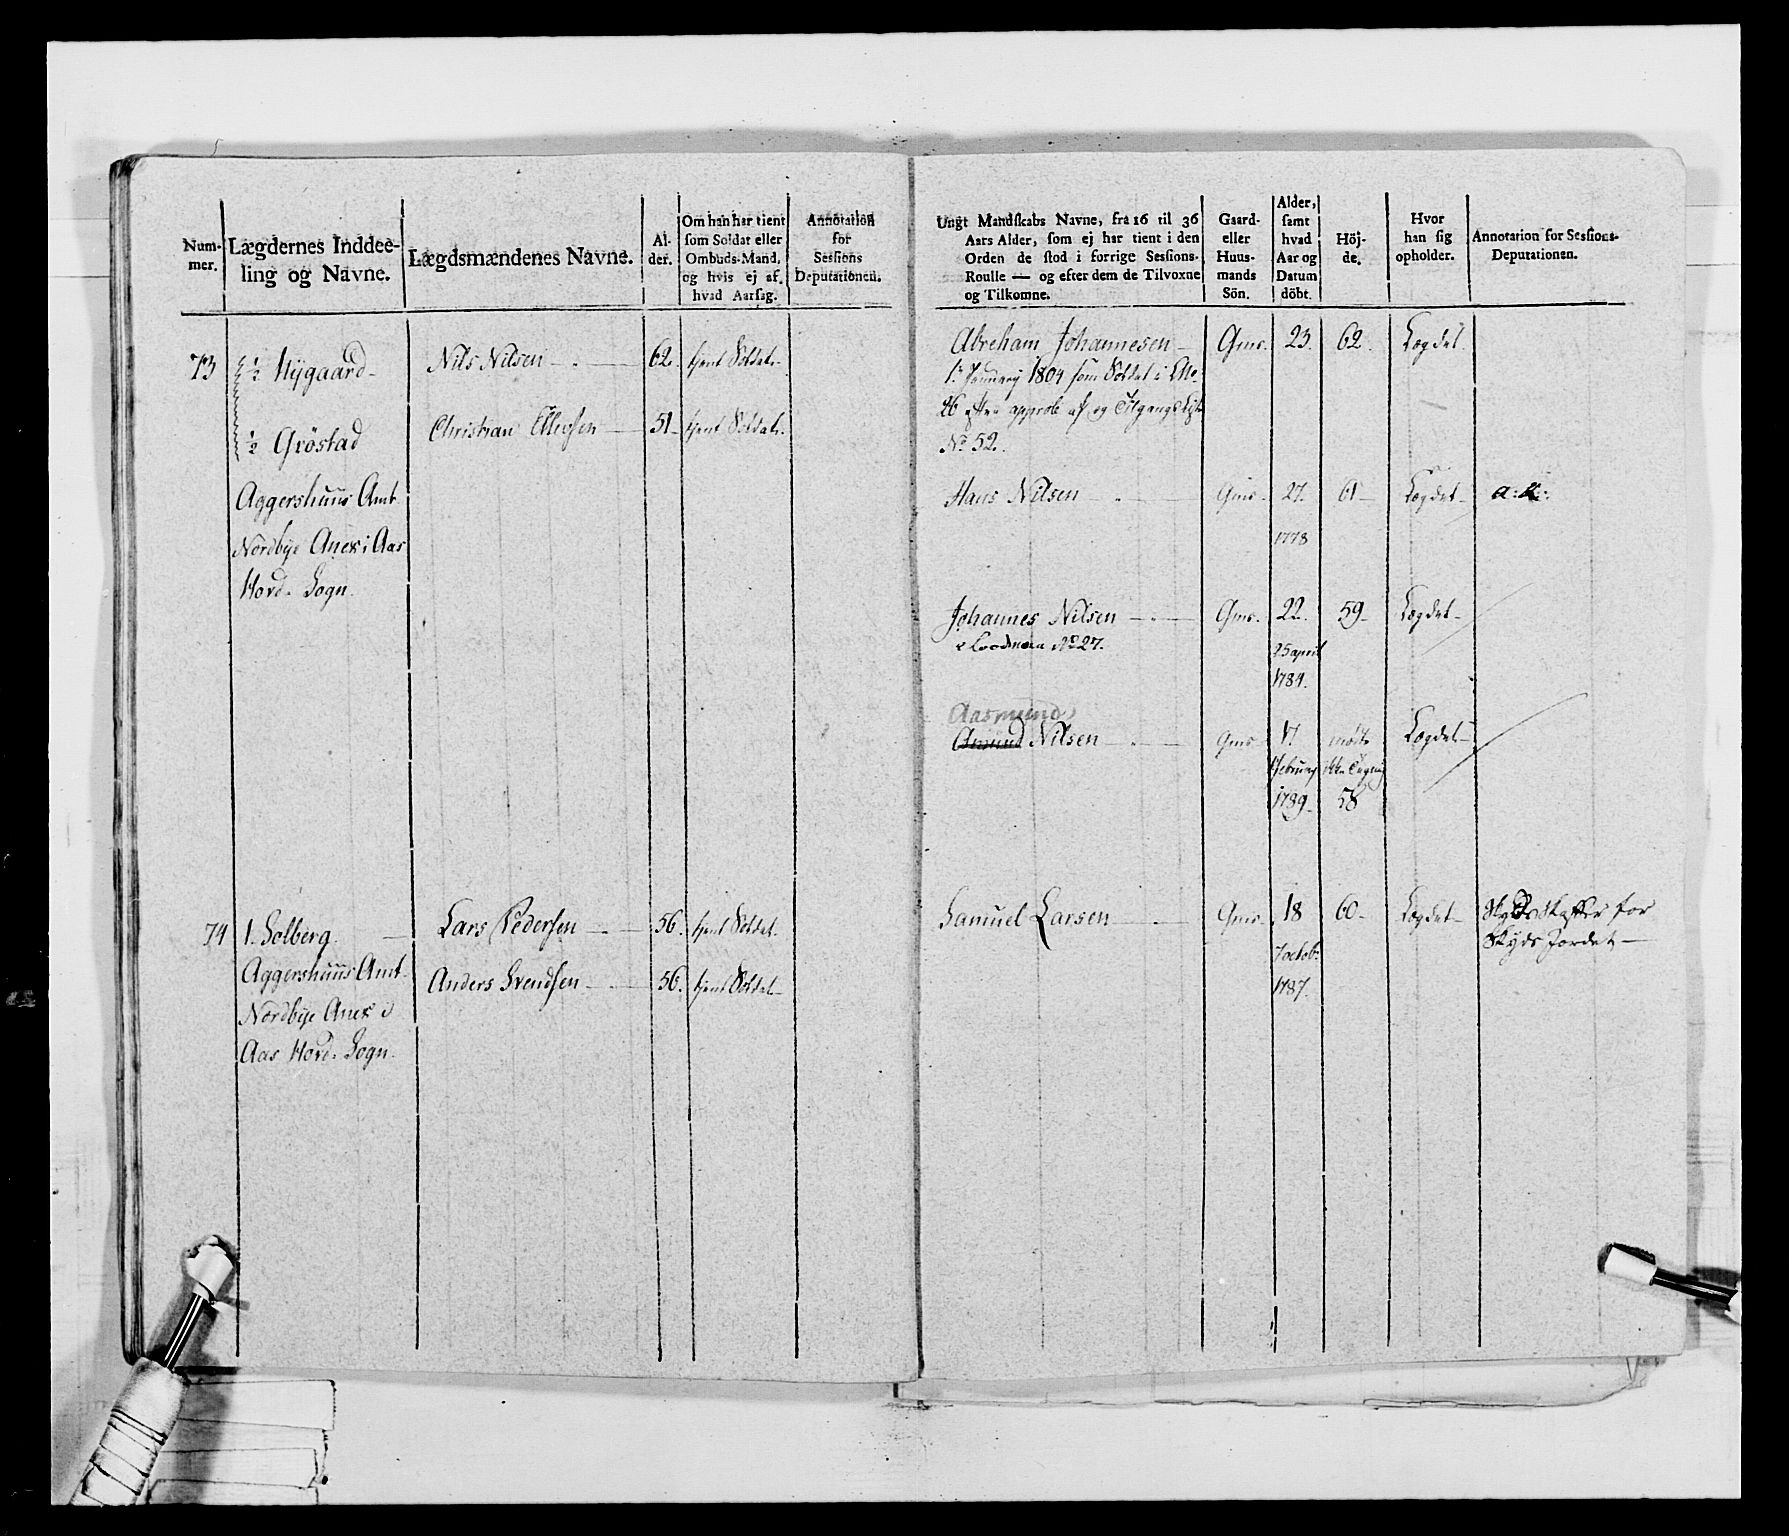 Num-
mer.
Lægdernes Inddee-
ling og Navne.
Lægdsmændenes Navne.
Al-
der.
Om han har tient
som Soldat eller
Ombuds-Mand,
og hvis ej af
hvad Aarsag.
Annotation
for
Sessions
Deputationen.
73
½ Nygaard
½ Gröstad
Aggershuus Amt
Nordbye Anex i Aas
Hovd. Sogn.
Nils Nilsen
62.
tient Soldat
Christian Ellevsen
51
tient Soldat
74
1. Solberg.
Aggershuus Amt
Nordbye Anex i
Aas Hovd. Sogn.
Lars Pedersen
56.
tient Soldat
Anders Svendsen
56.
tient Soldat
Ungt Mandskabs Navne, fra 16 til 36
Aars Alder, som ej har tient i den
Orden de stod i forrige Sessions-
Roulle — og efter dem de Tilvoxne
og Tilkomne.
Gaard-
eller
Huus-
mands
Sön.
Alder,
samt
hvad
Aar og
Datum
döbt.
Höj-
de.
Hvor
han sig
opholder.
Annotation for Sessions-
Deputationen.
Abreham Johannesen
Gms.
23.
62.
Lægdet
1. January 1804 som Soldat i
26 approb og Tilgangs
No. 52.
Hans Nilsen
Gms.
27.
61
Lægdet
a:k:
1778
Johannes Nilsen
Gms.
22.
59
Lægdet
No 27.
25 april
1784.
Aasmund
Amund Nilsen
Gms
17
mødte
Lægdet
February
ikke
1789
58
Samuel Larsen
Gms.
18
60
Lægdet
Skydsskaffer for
Skyds Jordet
7 octob.
1787.